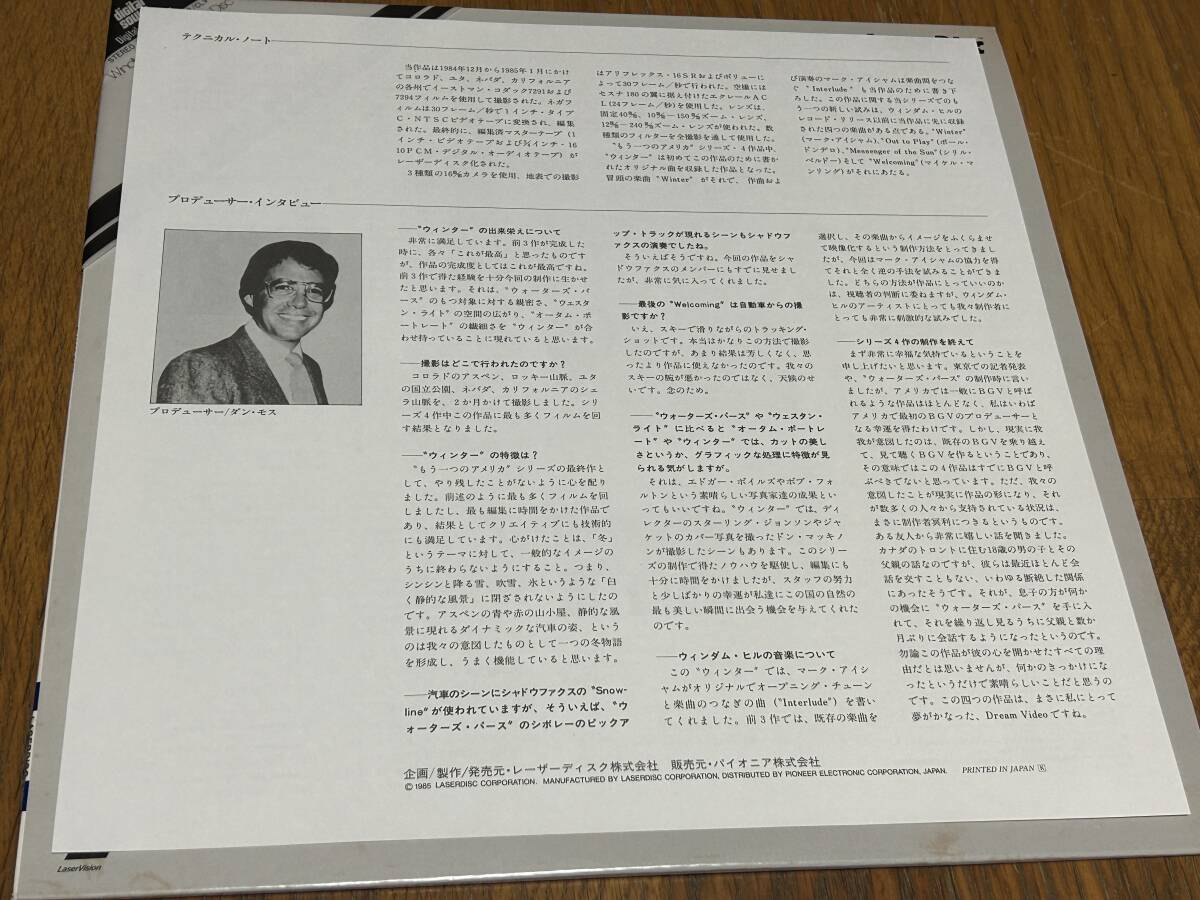 digital
sound
Digital
STEREO
テクニカル・ノート
当作品は1984年12月から1985年1月にかけ
てコロラド、ユタ、ネバダ、カリフォルニア
の各州でイーストマン・コダック7291および
7294フィルムを使用して撮影された。ネガフ
ィルムは30フレーム/秒で1インチ・タイプ
C・NTSCビデオテープに変換され、編集
された。最終的に、編集済マスターテープ(1
インチ・ビデオテープおよび¾インチ・16
10PCM・デジタル・オーディオテープ)が
レーザーディスク化された。
3種類の16㎜カメラを使用、地表での撮影
はアリフレックス・16SRおよびボリューに
よって30フレーム/秒で行われた。空撮には
セスナ180の翼に据え付けたエクレールAC
L(24フレーム/秒)を使用した。レンズは、
固定40㎜、10㎜―150㎜ズーム・レンズ、
12㎜―240㎜ズーム・レンズが使われた。数
種類のフィルターを全撮影を通して使用した。
〝もう一つのアメリカ〟シリーズ・4作品中、
〝ウィンター〟は初めてこの作品のために書か
れたオリジナル曲を収録した作品となった。
冒頭の楽曲〝Winter〟がそれで、作曲およ
び演奏のマーク・アイシャムは楽曲間をつな
ぐ〝Interlude〟も当作品のために書き下
ろした。この作品に関する当シリーズでのも
う一つの新しい試みは、ウィンダム・ヒルの
レコード・リリース以前に当作品に先に収録
された四つの楽曲がある点である。〝Winter〟
(マーク・アイシャム)、〝Out to Play〟(ポール・
ドンデロ)、〝Messenger of the Sun〟(シリル・
ベルドー)そして〝Welcoming〟(マイケル・マ
ンリング)がそれにあたる。
プロデューサー・インタビュー
プロデューサー/ダン・モス
――〝ウィンター〟の出来栄えについて
非常に満足しています。前3作が完成した
時に、各々「これが最高」と思ったものです
が、作品の完成度としてはこれが最高ですね。
前3作で得た経験を十分今回の制作に生かせ
たと思います。それは、〝ウォーターズ・パ
ース〟のもつ対象に対する親密さ、〝ウェスタ
ン・ライト〟の空間の広がり、〝オータム・ポ
ートレート〟の繊細さを〝ウィンター〟が合
わせ持っていることに現れていると思います。
――撮影はどこで行われたのですか?
コロラドのアスペン、ロッキー山脈、ユタ
の国立公園、ネバダ、カリフォルニアのシェ
ラ山脈を、2か月かけて撮影しました。シリ
ーズ4作中この作品に最も多くフィルムを回
す結果となりました。
――〝ウィンター〟の特徴は?
〝もう一つのアメリカ〟シリーズの最終作と
して、やり残したことがないように心を配り
ました。前述のように最も多くフィルムを回
しましたし、最も編集に時間をかけた作品で
あり、結果としてクリエイティブにも技術的
にも満足しています。心がけたことは、「冬」
というテーマに対して、一般的なイメージの
うちに終わらないようにすること。つまり、
シンシンと降る雪、吹雪、氷というような「白
く静的な風景」に閉ざされないようにしたの
です。アスペンの青や赤の山小屋、静的な風
景に現れるダイナミックな汽車の姿、という
のは我々の意図したものとして一つの冬物語
を形成し、うまく機能していると思います。
――汽車のシーンにシャドウファクスの〝Snow-
line〟が使われていますが、そういえば、〝ウ
ォーターズ・パース〟のシボレーのピックア
ップ・トラックが現れるシーンもシャドウフ
ァクスの演奏でしたね。
そういえばそうですね。今回の作品をシャ
ドウファクスのメンバーにもすでに見せまし
たが、非常に気に入ってくれました。
――最後の〝Welcoming〟は自動車からの撮
影ですか?
いえ、スキーで滑りながらのトラッキング・
ショットです。本当はかなりこの方法で撮影
したのですが、あまり結果は芳しくなく、思
ったより作品に使えなかったのです。我々の
スキーの腕が悪かったのではなく、天候のせ
いです。念のため。
――〝ウォーターズ・パース〟や〝ウェスタン・
ライト〟に比べると〝オータム・ポートレ
ート〟や〝ウィンター〟では、カットの美し
さというか、グラフィックな処理に特徴が見
られる気がしますが。
それは、エドガー・ボイルズやボブ・フォ
ルトンという素晴らしい写真家達の成果とい
ってもいいですね。〝ウィンター〟では、ディ
レクターのスターリング・ジョンソンやジャ
ケットのカバー写真を撮ったドン・マッキノ
ンが撮影したシーンもあります。このシリー
ズの制作で得たノウハウを駆使し、編集にも
十分に時間をかけましたが、スタッフの努力
と少しばかりの幸運が私達にこの国の自然の
最も美しい瞬間に出会う機会を与えてくれた
のです。
――ウィンダム・ヒルの音楽について
この〝ウィンター〟では、マーク・アイシ
ャムがオリジナルでオープニング・チューン
と楽曲のつなぎの曲(〝Interlude〟)を書い
てくれました。前3作では、既存の楽曲を
選択し、その楽曲からイメージをふくらませ
て映像化するという制作方法をとってきまし
たが、今回はマーク・アイシャムの協力を得
てそれと全く逆の手法を試みることができま
した。どちらの方法が作品にとっていいのか
は、視聴者の判断に委ねますが、ウィンダム・
ヒルのアーティストにとっても我々制作者に
とっても非常に刺激的な試みでした。
――シリーズ4作の制作を終えて
まず非常に幸福な気持でいるということを
申し上げたいと思います。東京での記者発表
や、〝ウォーターズ・パース〟の制作時に言い
ましたが、アメリカでは一般にBGVと呼ば
れるような作品はほとんどなく、私はいわば
アメリカで最初のBGVのプロデューサーと
なる幸運を得たわけです。しかし、現実に我
我が意図したのは、既存のBGVを乗り越え
て、見て聴くBGVを作るということであり、
その意味ではこの4作品はすでにBGVと呼
ぶべきでないと思っています。ただ、我々の
意図したことが現実に作品の形になり、それ
が数多くの人々から支持されている状況は、
まさに制作者冥利につきるというものです。
ある友人から非常に嬉しい話を聞きました。
カナダのトロントに住む18歳の男の子とその
父親の話なのですが、彼らは最近ほとんど会
話を交すこともない、いわゆる断絶した関係
にあったそうです。それが、息子の方が何か
の機会に〝ウォーターズ・パース〟を手に入
れて、それを繰り返し見るうちに父親と数か
月ぶりに会話するようになったというのです。
勿論この作品が彼の心を開かせたすべての理
由だとは思いませんが、何かのきっかけにな
ったというだけで素晴らしいことだと思うの
です。この四つの作品は、まさに私にとって
夢がかなった、Dream Videoですね。
企画/製作/発売元・レーザーディスク株式会社 販売元・パイオニア株式会社
©1985 LASERDISC CORPORATION. MANUFACTURED BY LASERDISC CORPORATION, DISTRIBUTED BY PIONEER ELECTRONIC CORPORATION, JAPAN. PRINTED IN JAPAN
LaserVision